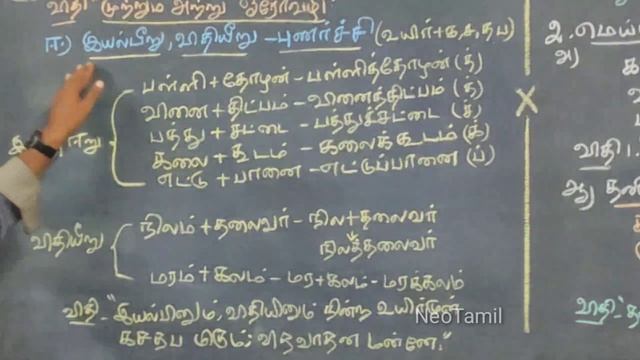 விதி முற்றும் அற்று ஒரோவழி
ஈ.) இயல்பீறு, விதியீறு - புணர்ச்சி (உயிர்+க,ச,த,ப)
பள்ளி + தோழன் - பள்ளித்தோழன் (த்)
வினை + திட்பம் - வினைத்திட்பம் (த்)
பத்து + சட்டை - பத்துச்சட்டை (ச்)
கலை + கூடம் - கலைக்கூடம் (க்)
எட்டு + பானை - எட்டுப்பானை (ப்)
விதியீறு
நிலம் + தலைவர் - நில+தலைவர்
நிலத்தலைவர்
மரம் + கலம் - மர+கலம் - மரக்கலம்
விதி - "இயல்பினும், விதியினும் நின்ற உயிர்முன்
கசதப மிகும்; விதவாதன மன்னே."
உ. மெய்
அ)
விதி 1.
ஆ) தனி
விதி-
NeoTamil